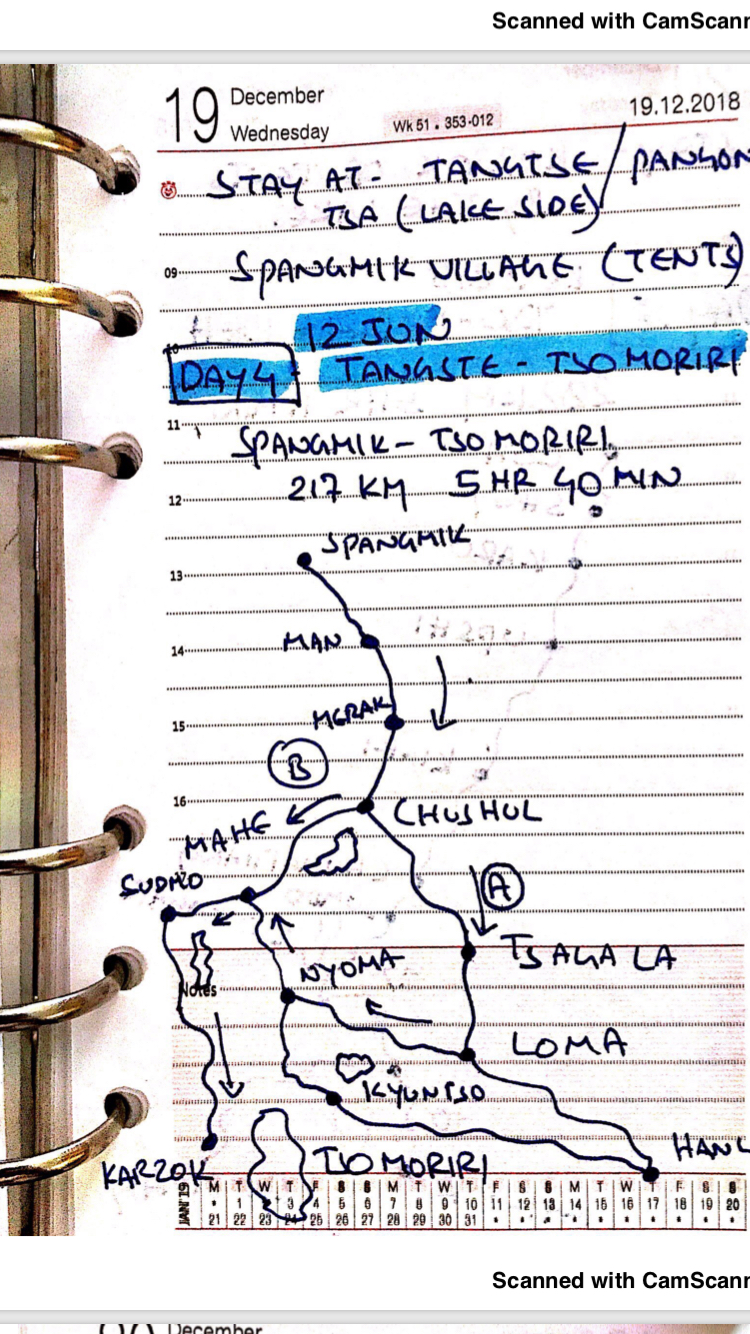 Scanned with CamScanr
19 December
Wednesday
Wk 51 . 353-012
19.12.2018
STAY AT - TANGTSE / PANGON
TSA (LAKE SIDE)
09 SPANGMIK VILLAGE (TENTS)
12 JUN
10
DAY 4 - TANGSTE - TSO MORIRI
11
SPANGMIK - TSO MORIRI
217 KM 5 HR 40 MIN
12
SPANGMIK
13
MAN
14
MERAK
15
B
16
CHUSHUL
MAHE
SUDMO
A
TSAGA LA
NYOMA
Notes
LOMA
KYUNTSO
HANL
KARZOK
TSO MORIRI
JAN'19 M T W T F S S M T W T F S S M T W T F S S
1 2 3 4 5 6 7 8 9 10 11 12 13 14 15 16 17 18 19 20
21 22 23 24 25 26 27 28 29 30 31
Scanned with CamScanr
December